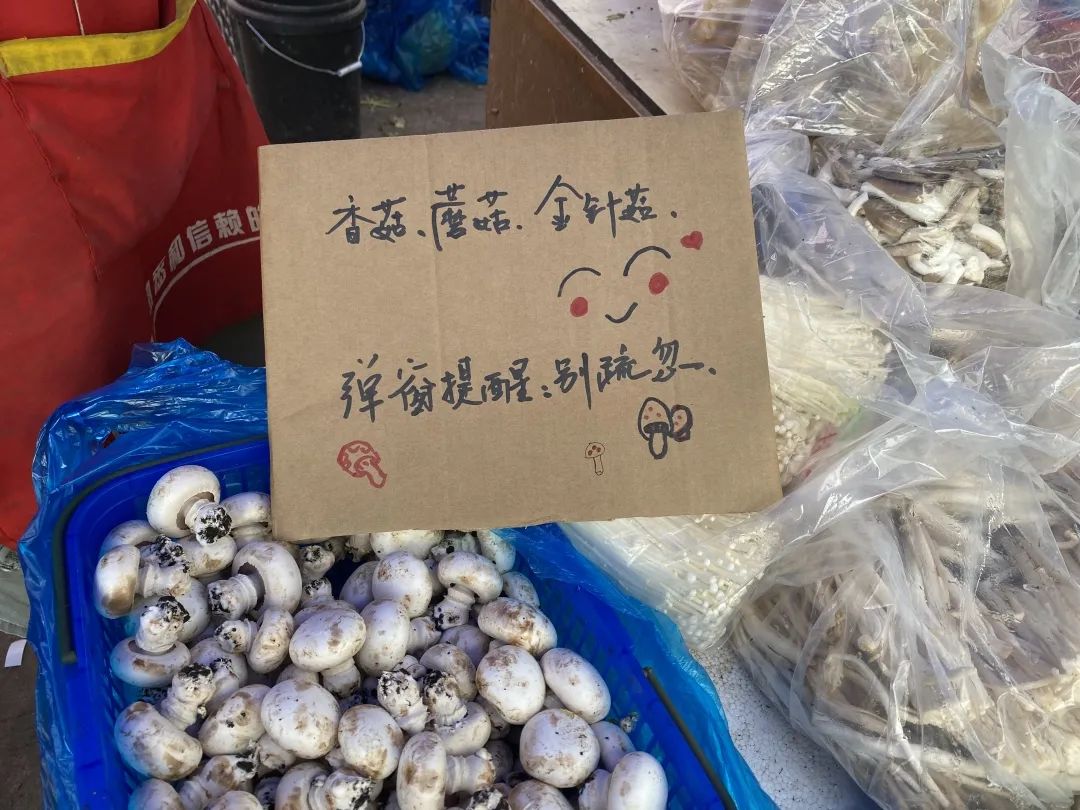 香菇、蘑菇、金针菇、
弹窗提醒:别疏忽、
和信赖的